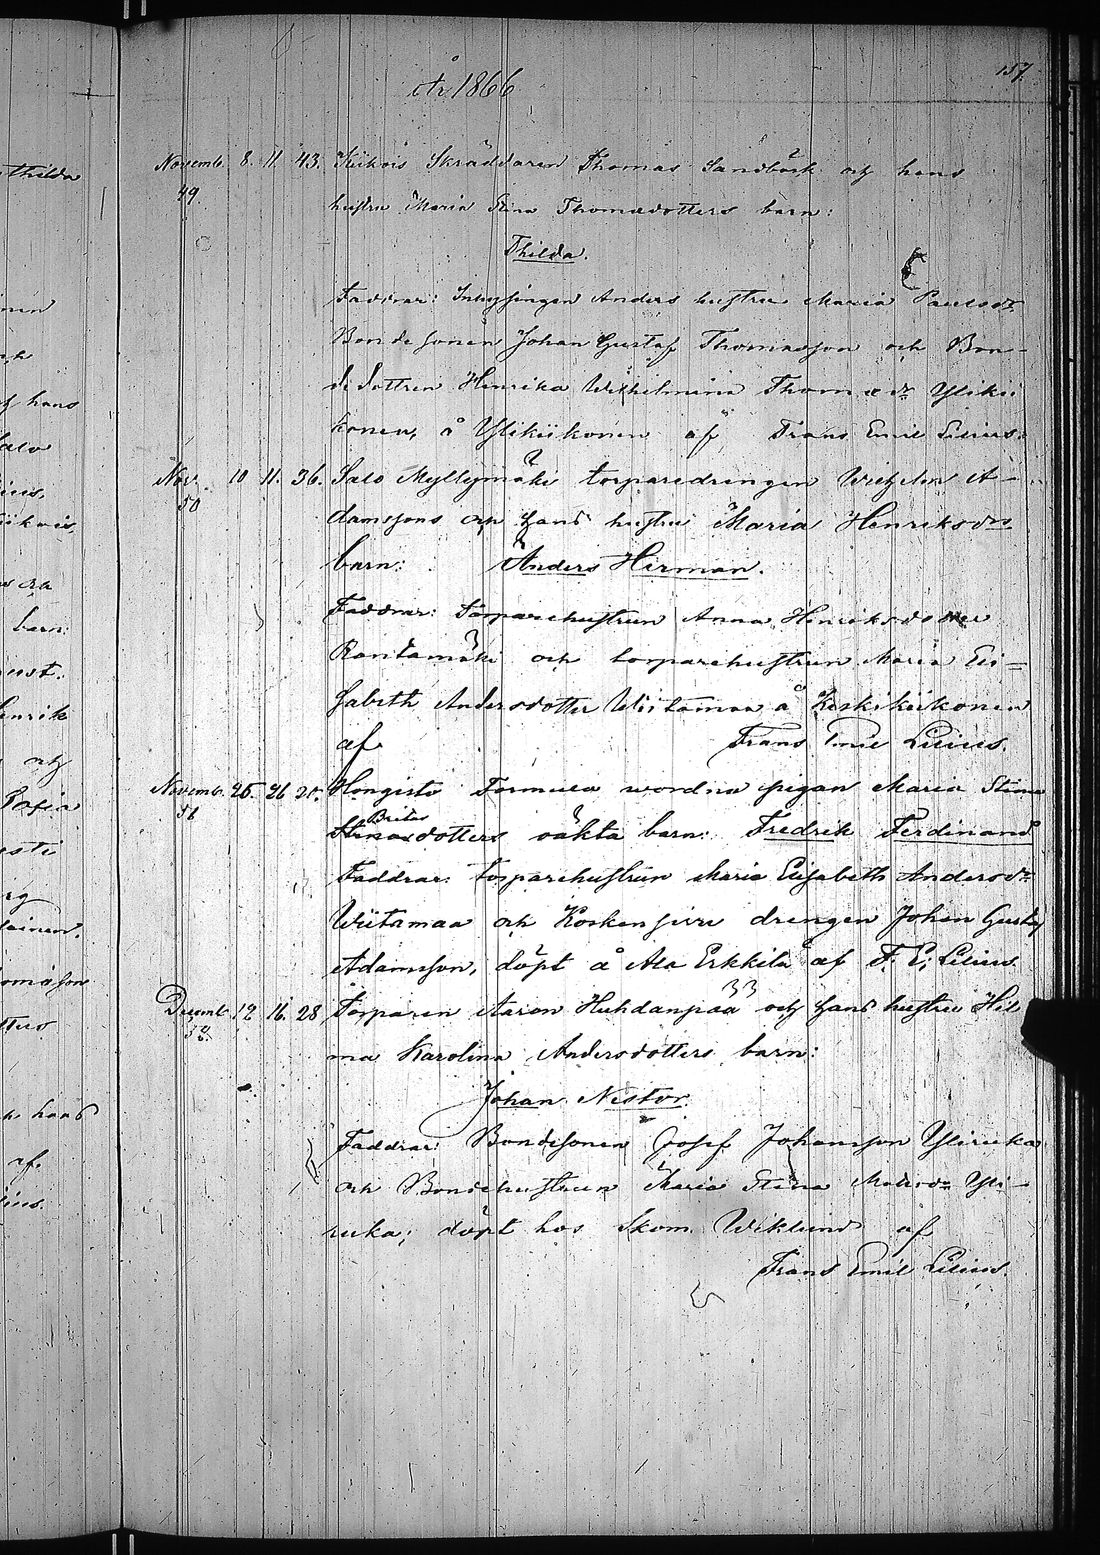 157.
År 1866
Novemb. 8. 11. 43. Kiikois Skräddaren Thomas Sandbäck och hans
49. hustru Maria Stina Thomædotters barn:
Thilda.
Faddrar: Inhysingen Anders hustru Maria Paulsdr
Bondesonen Johan Gustaf Thomasson och Bon-
dedottren Henrika Wilhelmina Thomædr Yliki-
konen, å Ylikiikonen af Frans Emil Lilius.
Nov. 10 11. 36. Salo Myllymäki torparedrengen Wilhelm A-
50 damssons och hans hustru Maria Henriksdrs
barn: Anders Herman.
Faddrar: Torparehustrun Anna Henriksdotter
Rantamäki och torparehustrun Maria Eli-
sabeth Andersdotter Wiitamaa å Keskikiikonen
af Frans Emil Lilius.
Novemb. 25. 26 20. Hongisto Formula wordna pigan Maria Stina
51 Britas
Stinasdotters oäkta barn: Fredrik Ferdinand
Faddrar: torparehustrun Maria Elisabeth Andersdr
Wiitamaa och Koskensivu drengen Johan Gustaf
Adamsson, döpt å Ala Erkkilä af F. E. Lilius.
Decemb. 12 16. 28 Torparen Aaron Huhdanpää och hans hustru Hel-
52. ma Karolina Andersdotters barn:
Johan Nestor.
Faddrar: Bondesonen Josef Johansson Yliruka
och Bondehustrun Maria Stina Yli-
ruka; döpt hos Skom. Wiklund af
Frans Emil Lilius.